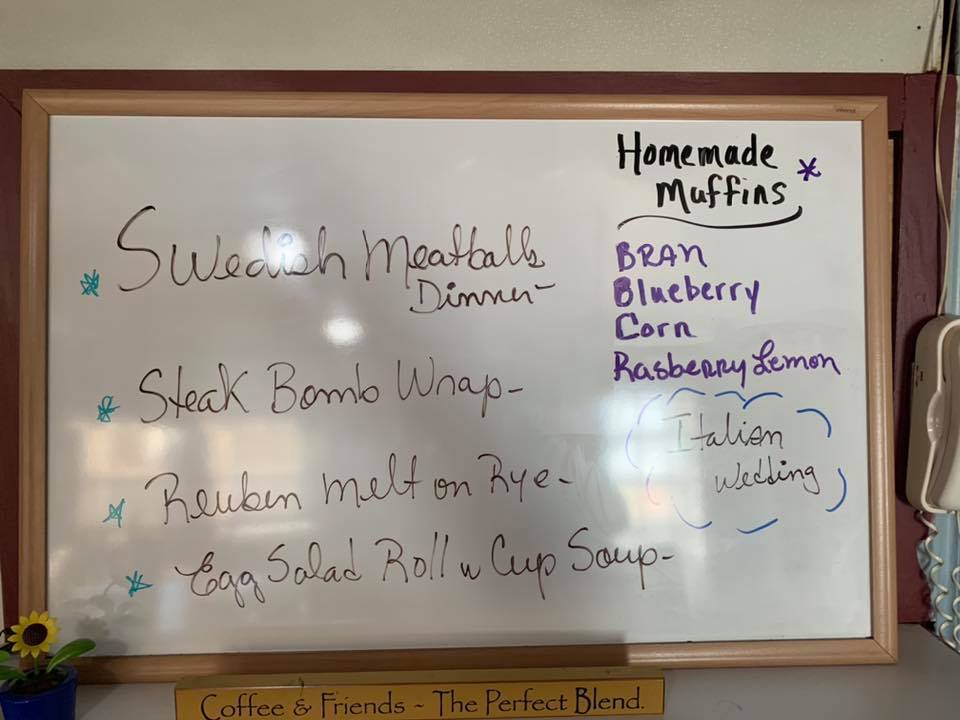 Swedish Meatballs
Dinner-
Steak Bomb Wrap-
Reuben Melt on Rye-
Egg Salad Roll w Cup Soup-
Homemade
Muffins
BRAN
Blueberry
Corn
Rasberry Lemon
Italian
Wedding
Coffee & Friends ~ The Perfect Blend.